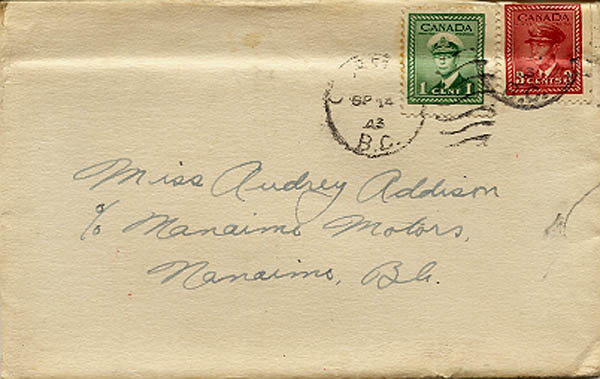 CANADA
1 CENT 1
CANADA
3 CENTS 3
SP 14
43
B.C.
Miss Audrey Addison
c/o Nanaimo Motors,
Nanaimo, B.C.